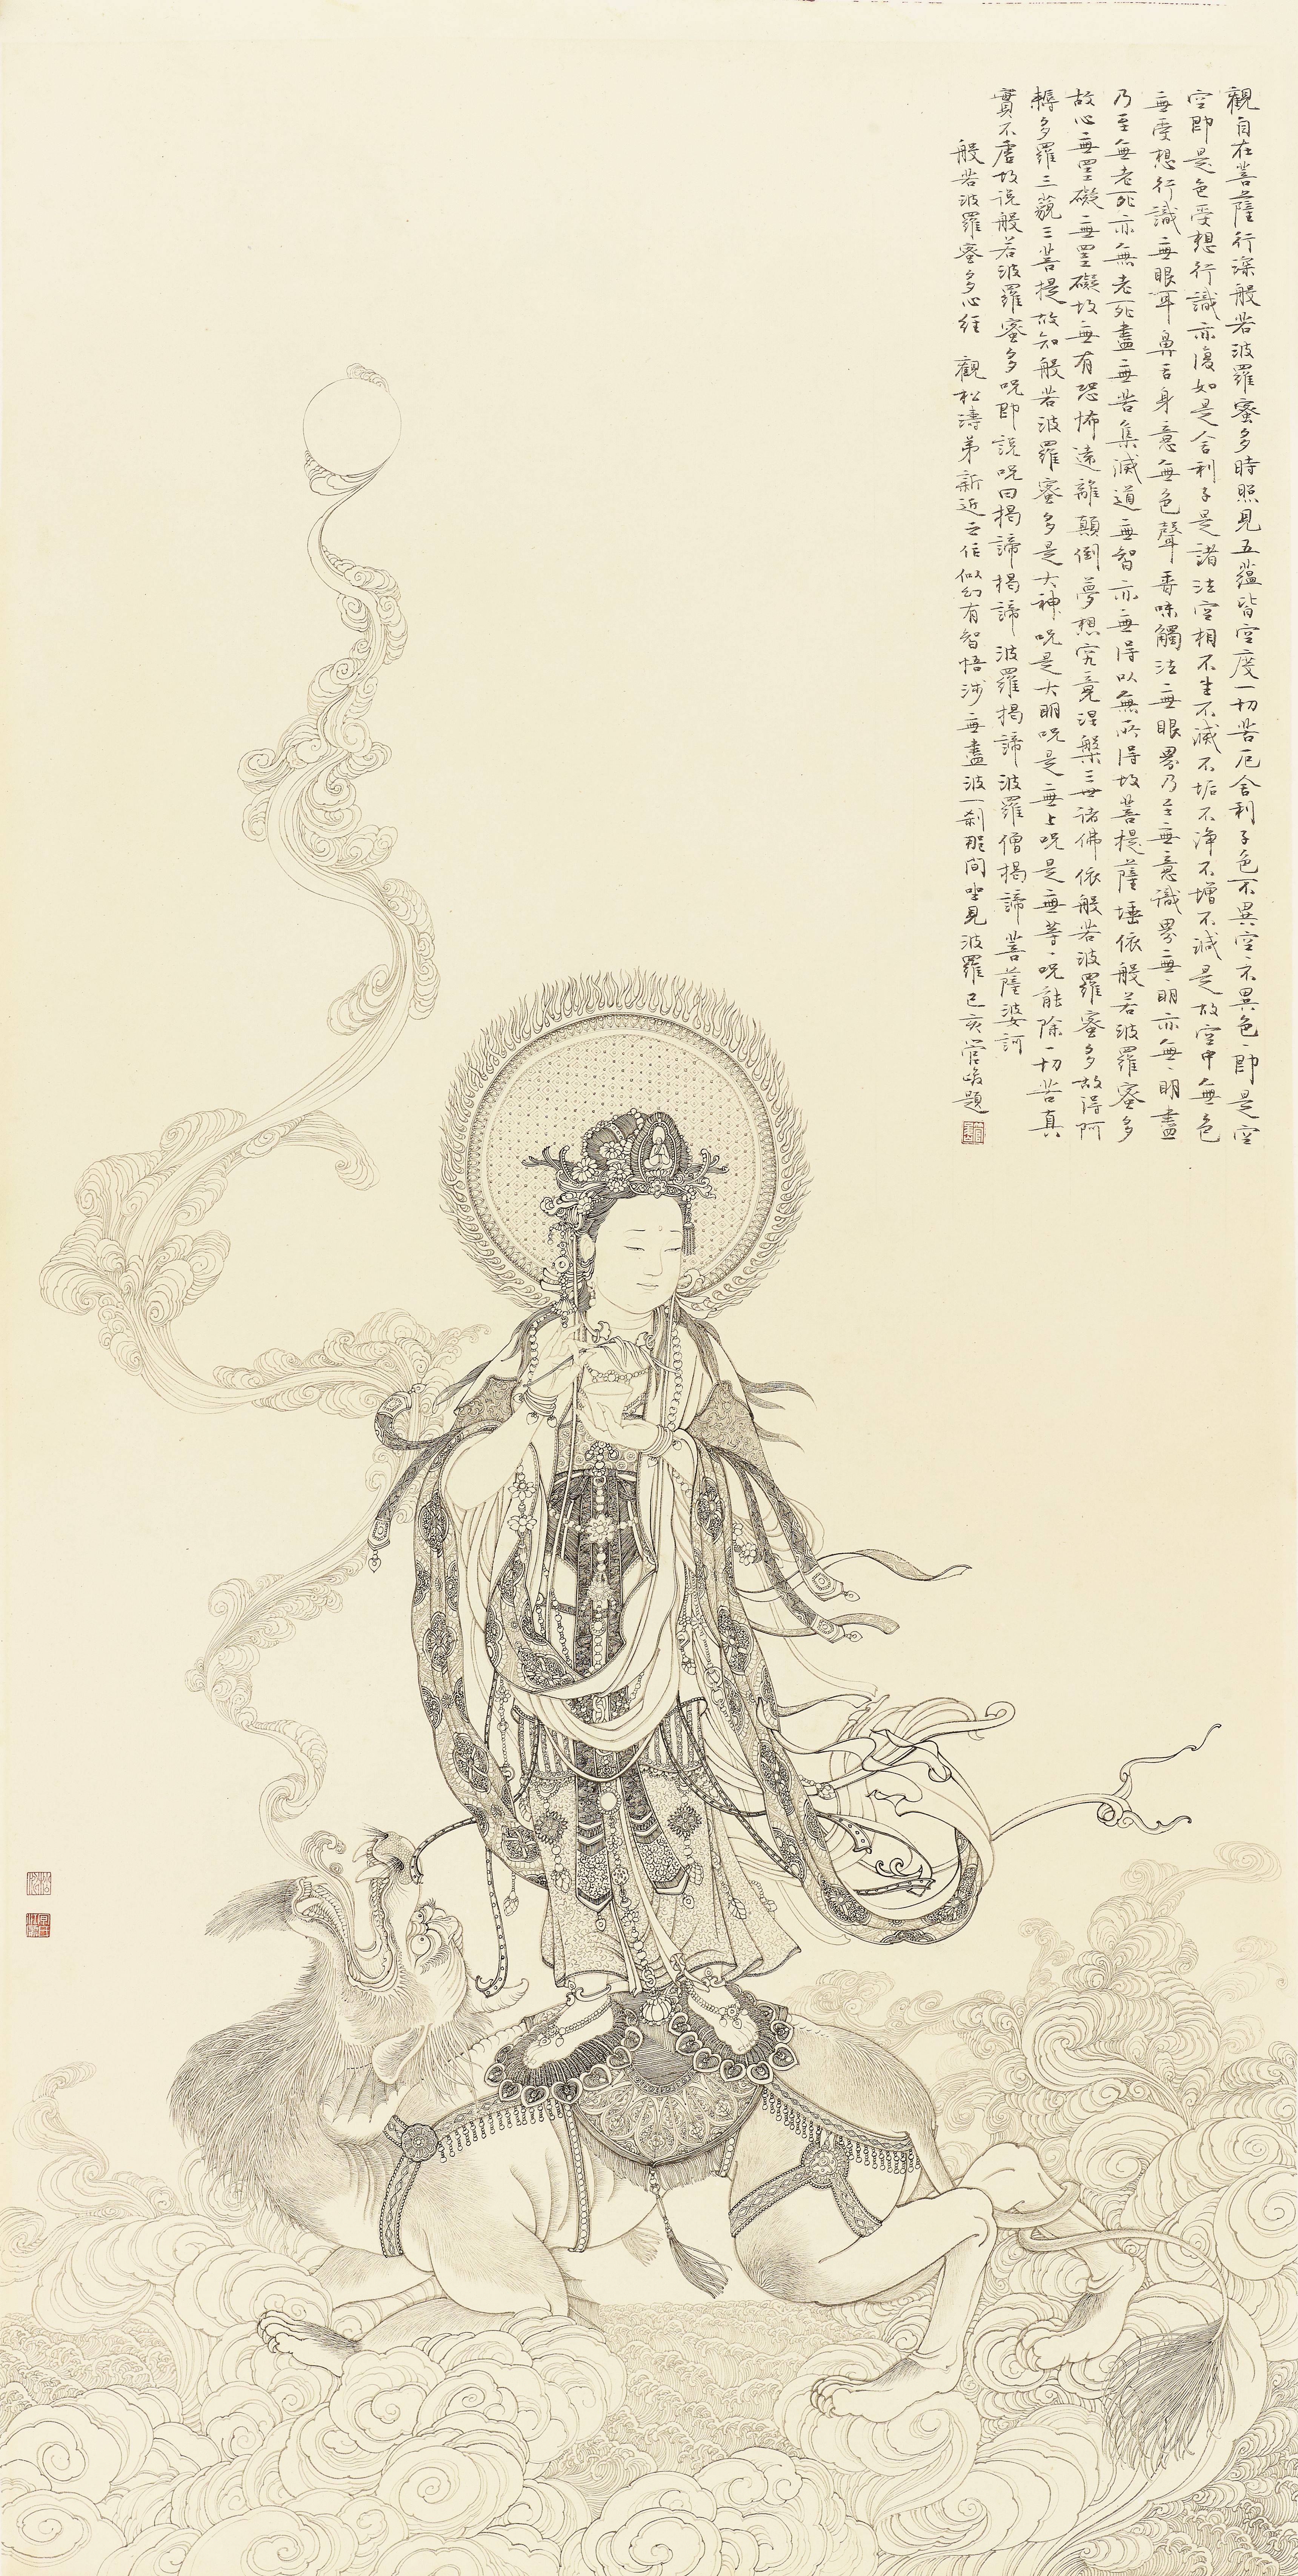 觀自在菩薩行深般若波羅蜜多時照見五蘊皆空度一切苦厄舍利子色不異空、不異色、即是空
空即是色受想行識亦復如是舍利子是諸法空相不生不滅不垢不淨不增不減是故空中無色
無受想行識無眼耳鼻舌身意無色聲香味觸法無眼界乃至無意識界無、明亦無、明盡
乃至無老死亦無老死盡無苦集滅道無智亦無得以無所得故菩提薩埵依般若波羅蜜多
故心無罣礙無罣礙故無有恐怖遠離顛倒夢想究竟涅槃三世諸佛依般若波羅蜜多故得阿
耨多羅三藐三菩提故知般若波羅蜜多是大神呪是大明呪是無上呪是無等、呪能除一切苦真
實不虛故說般若波羅蜜多呪即說呪曰揭諦揭諦波羅揭諦波羅僧揭諦菩薩婆訶
般若波羅蜜多心經 觀松濤弟新近之作似幻有智悟涉無盡波一剎那間坐見波羅己亥管峻題